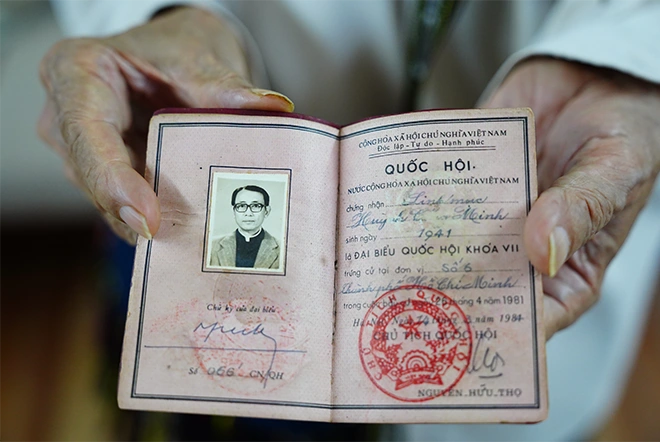 Chữ ký của đại biểu
Số 066 CN/QH
CỘNG HÒA XÃ HỘI CHỦ NGHĨA VIỆT NAM
Độc lập - Tự do - Hạnh phúc
QUỐC HỘI
NƯỚC CỘNG HÒA XÃ HỘI CHỦ NGHĨA VIỆT NAM
chứng nhận Linh mục
Minh
sinh ngày 1941
là ĐẠI BIỂU QUỐC HỘI KHÓA VII
trúng cử tại đơn vị Số 6
Thành phố Hồ Chí Minh
trong cuộc tháng 4 năm 1981
Hà năm 1981
CHỦ TỊCH QUỐC HỘI
NGUYỄN HỮU THỌ